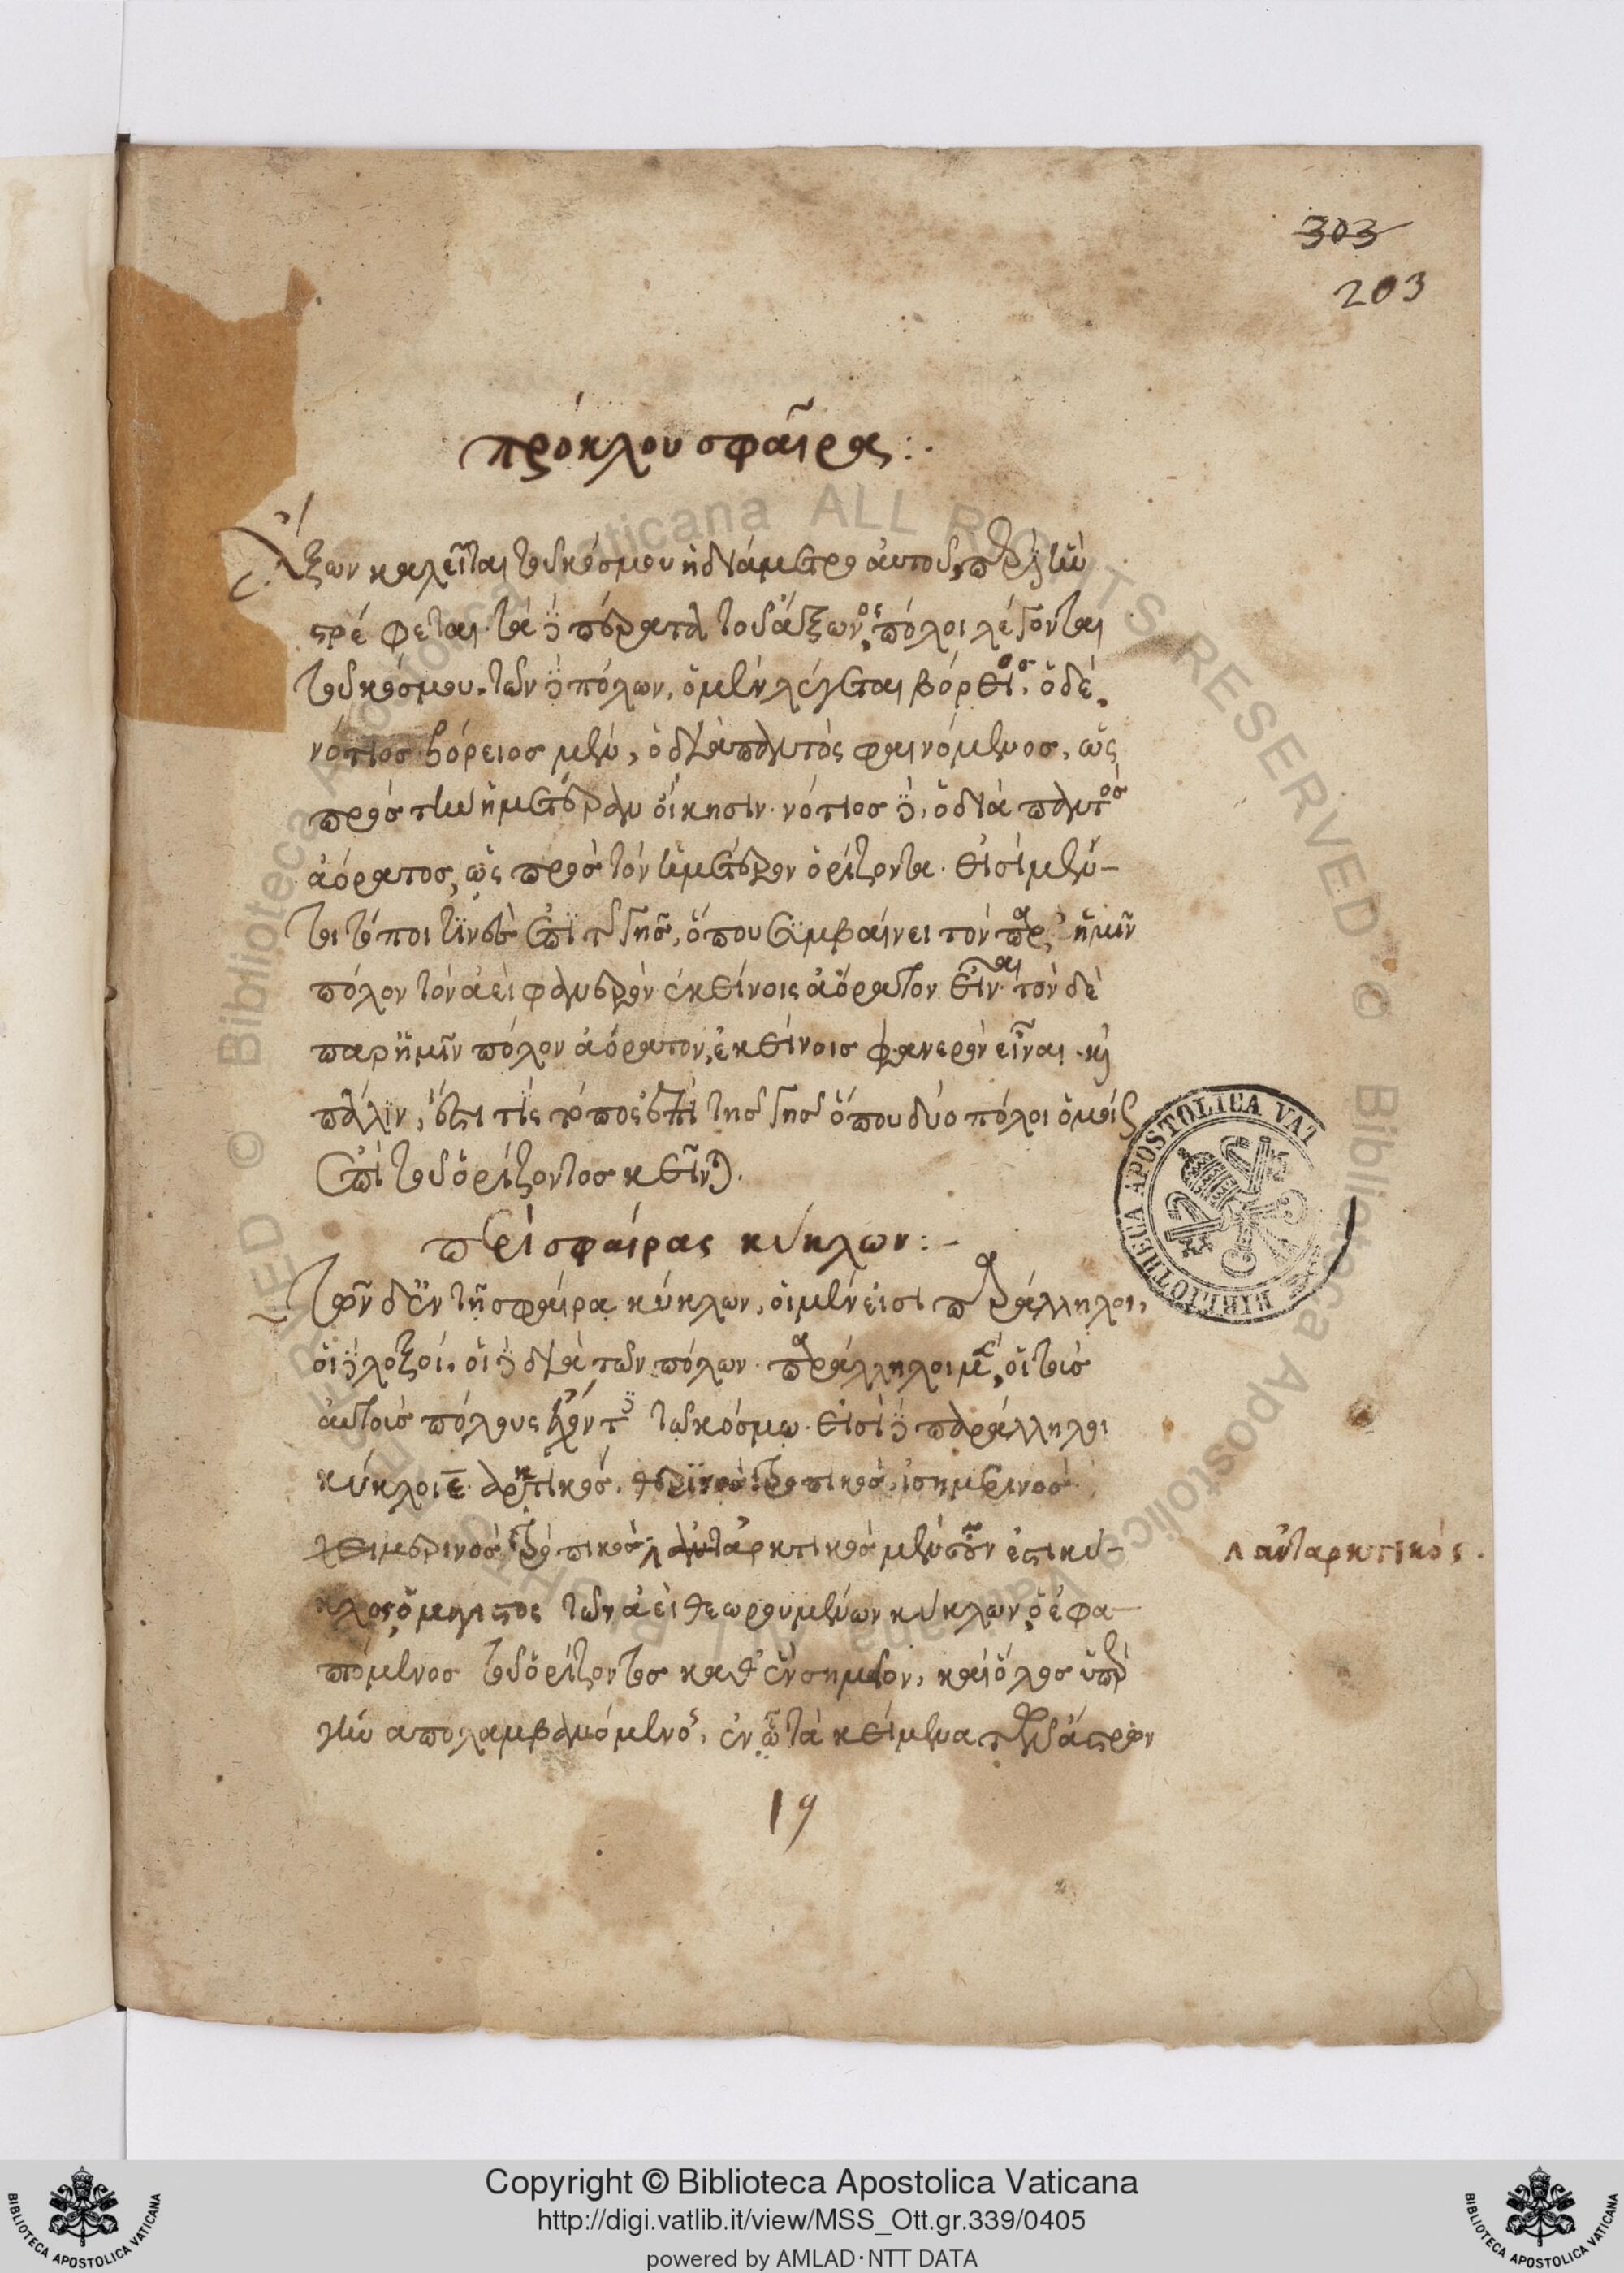 303
203
πρόκλου σφαῖρας :.
Ἄξων καλεῖται τοῦ κόσμου ἡ διάμετρος αὐτοῦ, περὶ ἣν
στρέφεται. τὰ δὲ πέρατα τοῦ ἄξωνος, πόλοι λέγονται
τοῦ κόσμου. τῶν δὲ πόλων, ὁ μὲν λέγεται βόρειος. ὁ δὲ,
νότιος. βόρειος μὲν, ὁ διαπαντὸς φαινόμενος, ὡς
πρὸς τὴν ἡμετέραν οἴκησιν. νότιος δὲ, ὁ διὰ παντὸς
ἀόρατος, ὡς πρὸς τὸν ἡμέτερον ὁρίζοντα. εἰσὶ μέν-
τοι τόποι τινὲς ἐπὶ τῆς γῆς, ὅπου συμβαίνει τὸν παρ' ἡμῖν
πόλον τὸν ἀεὶ φανερὸν ἐκείνοις ἀόρατον εἶναι. τὸν δὲ
παρ' ἡμῖν πόλον ἀόρατον, ἐκείνοις φανερὸν εἶναι. καὶ
πάλιν, ἔστι τίς τόπος ἐπὶ τῆς γῆς ὅπου δύο πόλοι ὁμοίως
ἐπὶ τοῦ ὁρίζοντος κεῖνται.
περὶ σφαίρας κύκλων :-
Τῶν δὲ ἐν τῇ σφαίρᾳ κύκλων, οἱ μὲν εἰσι παράλληλοι,
οἱ δὲ λοξοί, οἱ δὲ διὰ τῶν πόλων. παράλληλοι μὲν, οἱ τοὺς
αὐτοὺς πόλους ἔχοντες τῷ κόσμῳ. εἰσὶ δὲ παράλληλοι
κύκλοι ε̄. ἀρκτικὸς. θερινὸς τροπικὸς, ἰσημερινὸς
χειμερινὸς τροπικὸς ἀνταρκτικὸς μὲν οὖν ἐστι κύ-
κλος, ὁ μέγιστος τῶν ἀεὶ θεωρουμένων κύκλων, ὁ ἐφα-
πτόμενος τοῦ ὁρίζοντος καθ' ἓν σημεῖον, καὶ ὅλος ὑπὲρ
γῆν απολαμβανόμενος, ἐν ᾧ τὰ κείμενα τῶν ἄστρων
ἀνταρκτικός.
19
BIBLIOTHECA APOSTOLICA VAT
Copyright © Biblioteca Apostolica Vaticana
http://digi.vatlib.it/view/MSS_Ott.gr.339/0405
powered by AMLAD·NTT DATA
BIBLIOTECA APOSTOLICA VATICANA
BIBLIOTECA APOSTOLICA VATICANA